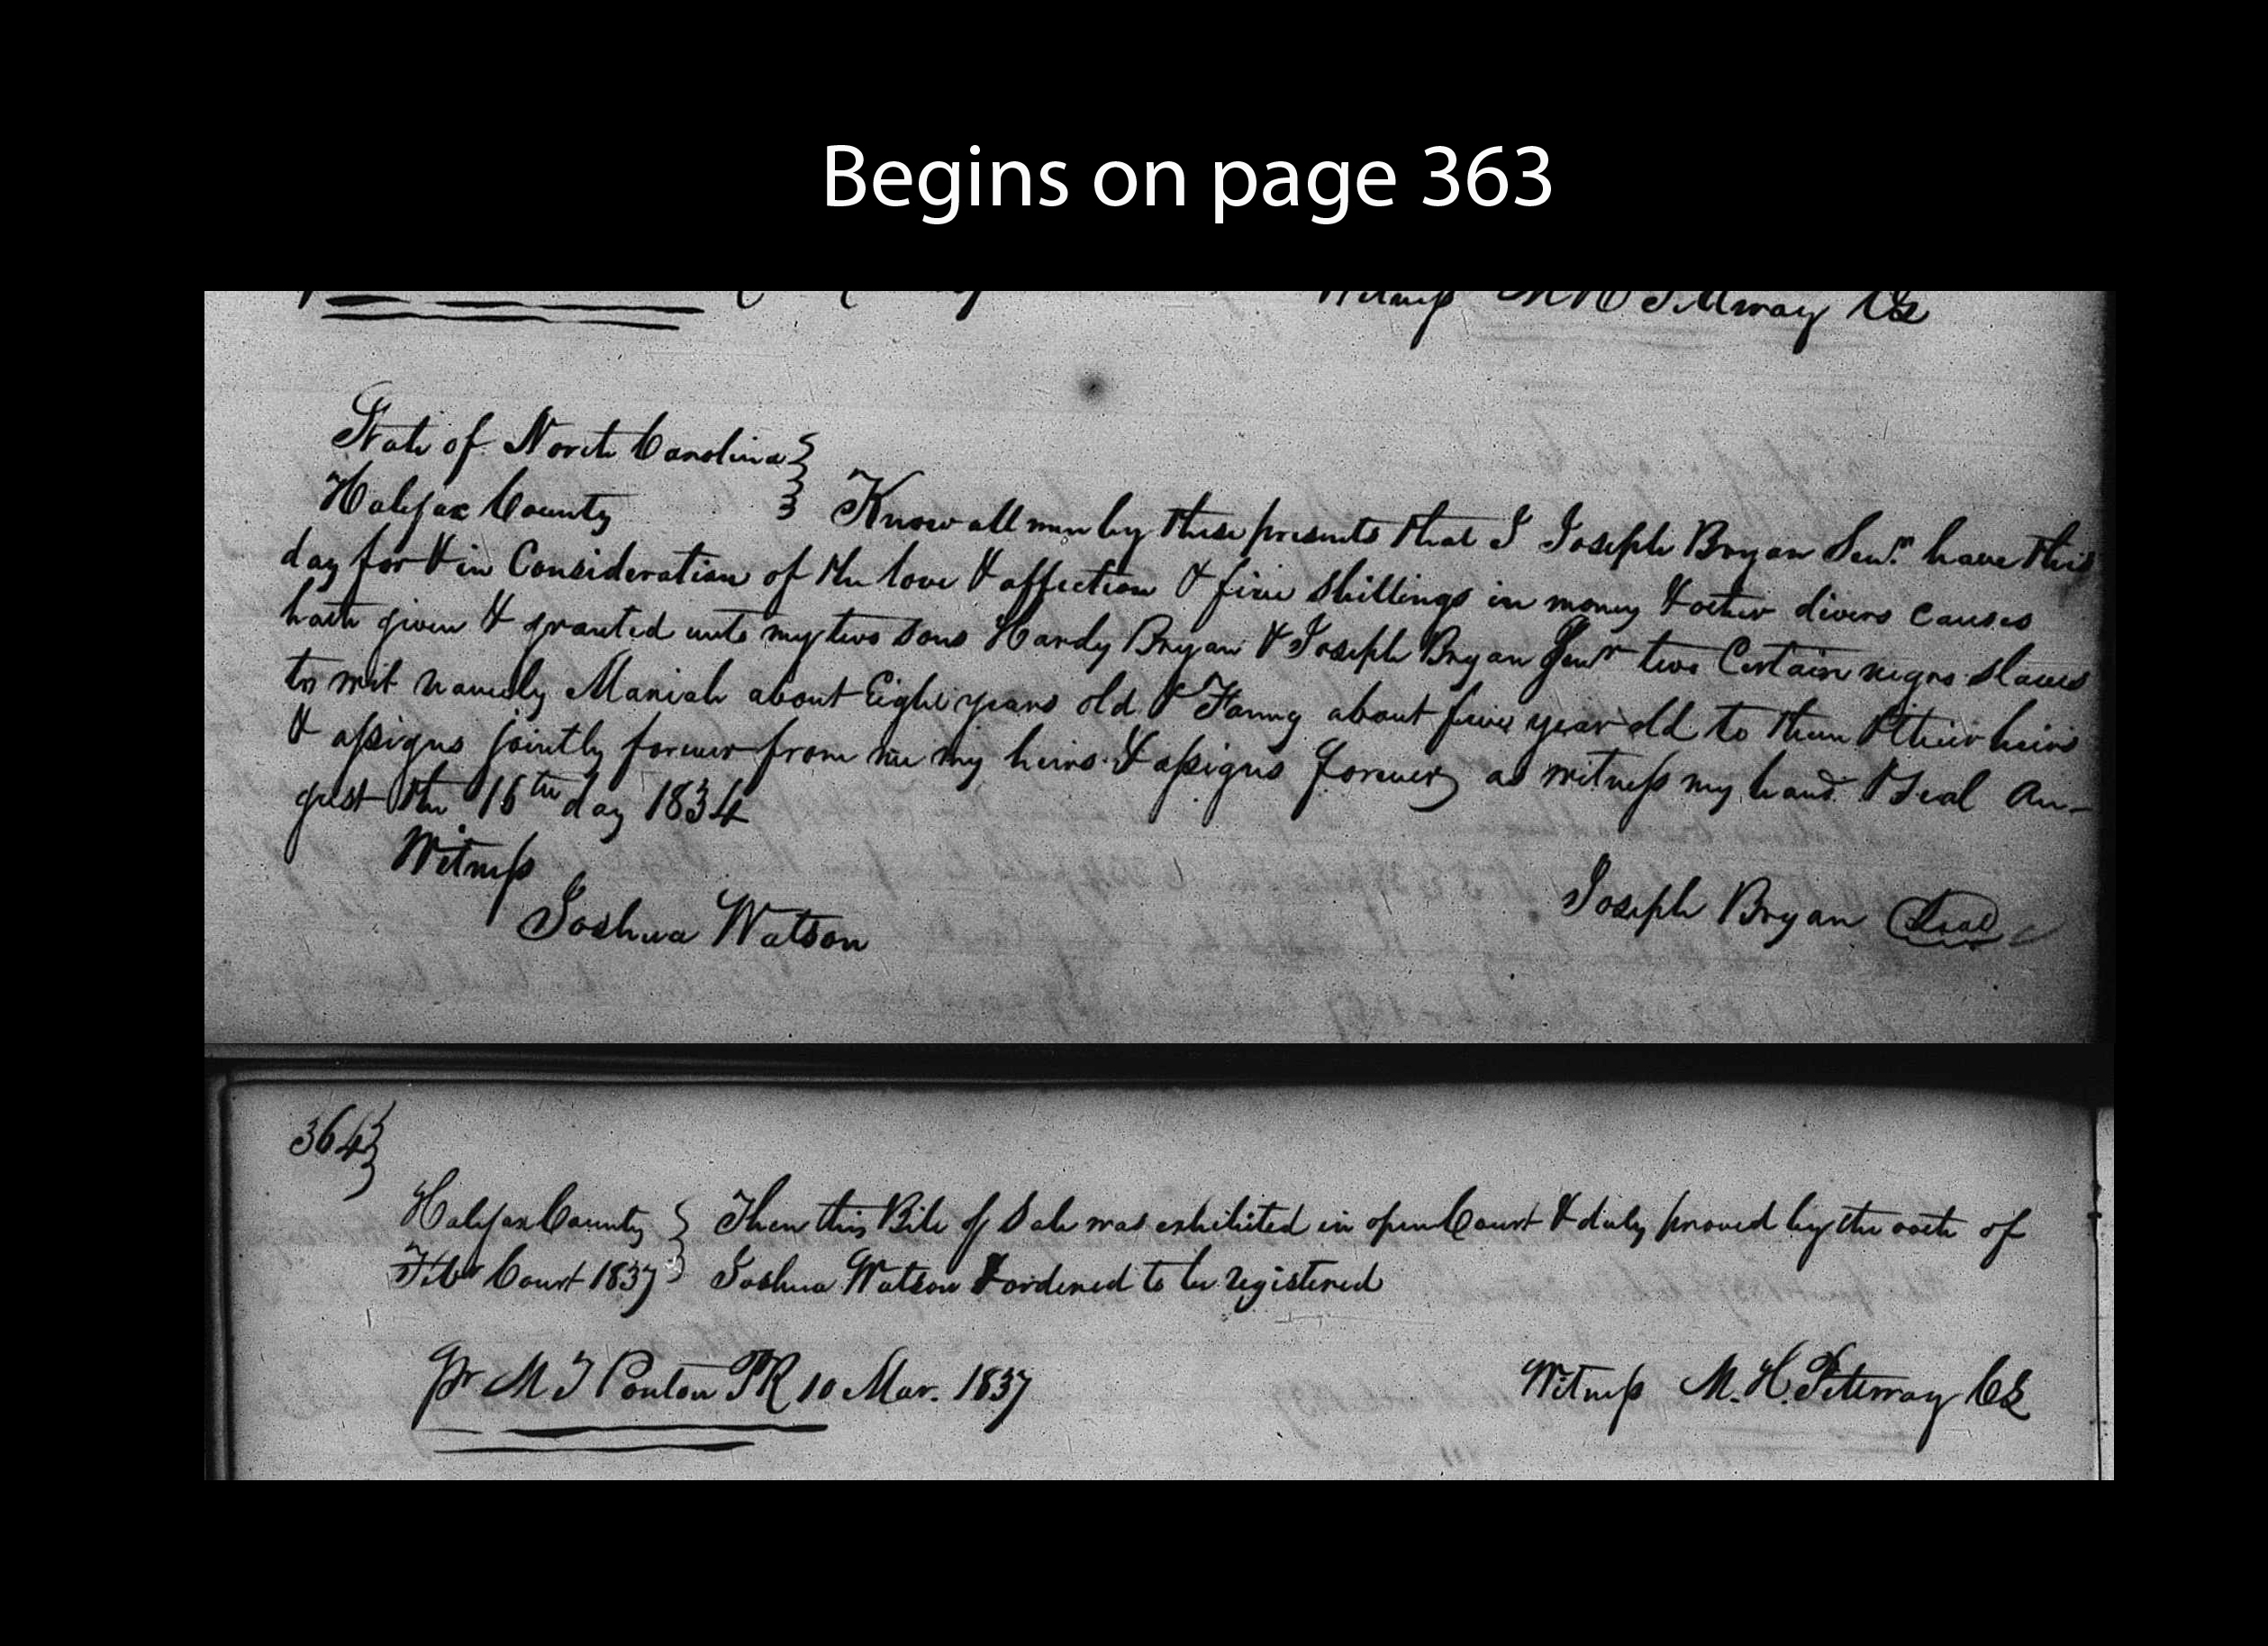 Begins on page 363
Witness M H Pittway CC
State of North Carolina
Halifax County Know all men by these presents that I Joseph Bryan Senr. have this
day for & in Consideration of the love & affection & five shillings in money & other divers causes
hath given & granted unto my two sons Hardy Bryan & Joseph Bryan Junr two Certain negro slaves
to wit namely Mariah about Eight years old & Fanny about five year old to them & their heirs
& assigns jointly forever from me my heirs & assigns forever as witness my hand & Seal Au-
gust the 16th day 1834
Witness
Joshua Watson
Joseph Bryan Seal
364
Halifax County Then this Bill of Sale was exhibited in open Court & duly proved by the oath of
Feby Court 1837 Joshua Watson & ordered to be registered
Pr M T Ponton PR 10 Mar. 1837
Witness M. H. Petteway CC